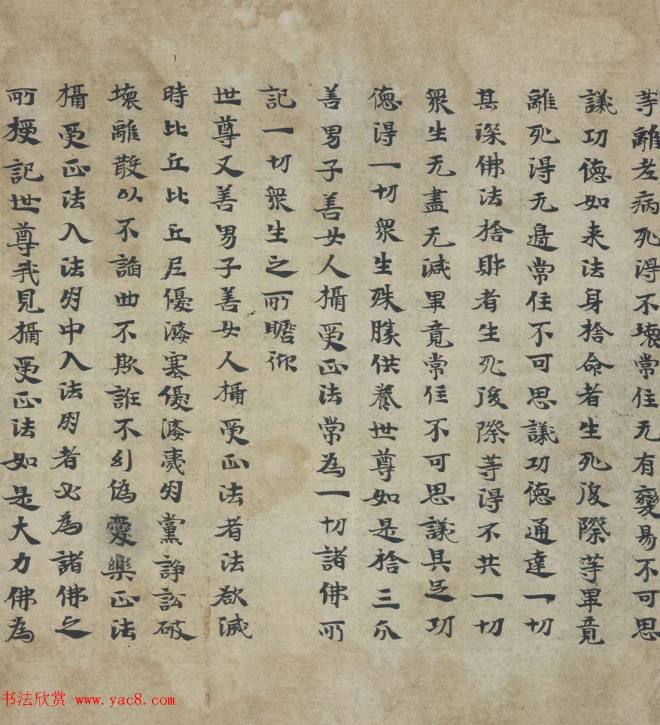 等離老病死得不壞常住无有變易不可思
議功德如来法身捨命者生死後際等畢竟
離死得无邊常住不可思議功德通達一切
甚深佛法捨財者生死後際等得不共一切
衆生无盡无減畢竟常住不可思議具足功
德得一切衆生殊勝供養世尊如是捨三分
善男子善女人攝受正法常為一切諸佛所
記一切衆生之所瞻仰
世尊又善男子善女人攝受正法者法欲滅
時比丘比丘尼優婆塞優婆夷朋黨諍訟破
壞離散以不諂曲不欺誑不幻偽愛樂正法
攝受正法入法朋中入法朋者必為諸佛之
所授記世尊我見攝受正法如是大力佛為
书法欣赏 www.yac8.com